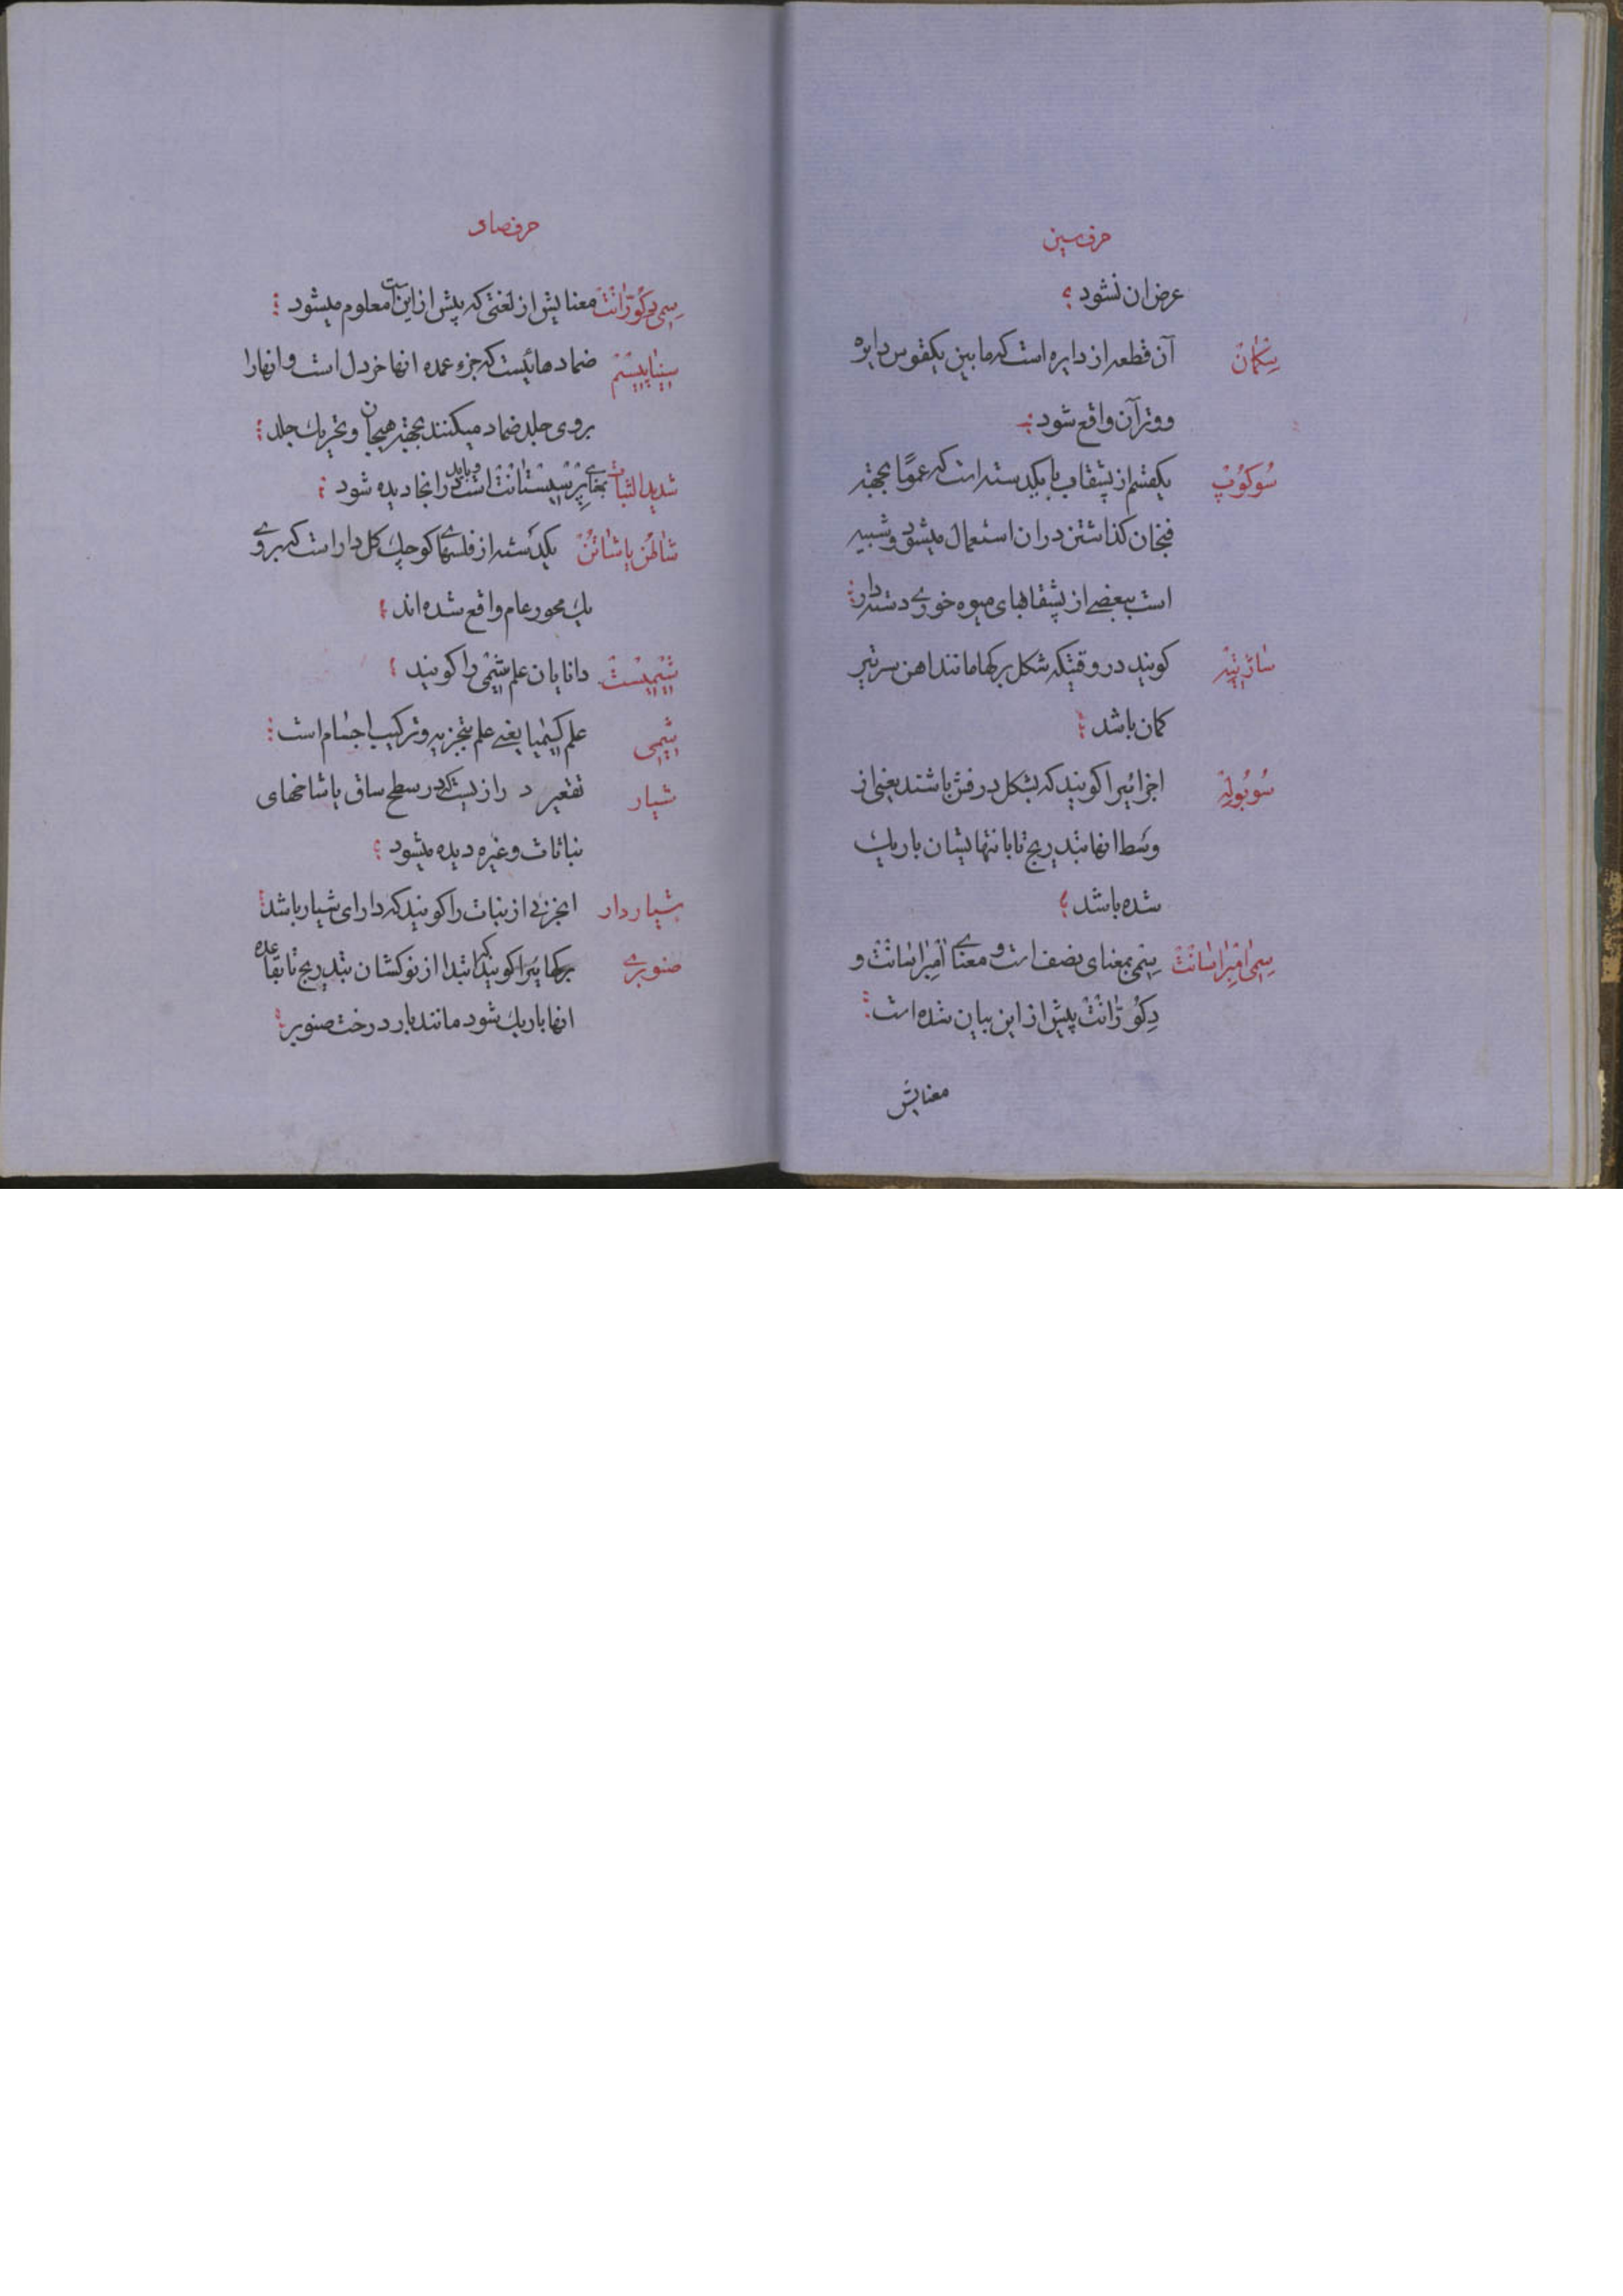 حرف سین
عرض ان نشود
سِکمان آن قطعه از دایره است که ما بین یکقوس دایره
و وتر آن واقع شود
سُوکوُپ یکقسم از پشقاب با یکدسته است که عموًما بجهة
فنجان کذاشتن در ان استعمال میشود و شبیه
است ببعضے از پشقابهای میوه خورے دسته دار
ساژیته کویند در وقتیکه شکل برکها مانند اهن سر تیر
کمان باشد
سُوبُوله اجزائیرا کویند که بشکل درفش باشند یعنی از
وسط انها بتدریج تا بانتهایشان باریك
شده باشد
سِمی اَمْبِراسانْتْ سِمی بمعنای نصف است و معناے اَمْبِراسانْتْ و
دِکوُرانْتْ پیش از این بیان شده است
معنایش
حرف صاد
سِمی دِکوُرانْتْ معنایش از لغتی که پیش از این است معلوم میشود
سیناپیسْمْ ضماد هائیست که جزء عمده انها خردل است و انها را
بروی جلد ضماد میکنند بجهة هیجان و تحریك جلد
شدید الثبات بمعناے پِرْسیسْتانْتْ است و باید در انجا دیده شود
شاطُن یا شاتُنْ یکدسته از فلسهاے کوچك کل دار است که بروے
یك محور عام واقع شده اند
شیمیسْتْ دانایان علم شیمی را کویند
شیمی علم کیمیا یعنے علم تجزیه و ترکیب اجسام است
شیار تقعیر درازیست که در سطح ساق یا شاخهای
نباتات و غیره دیده میشود
شیاردار انجزئی از نبات را کویند که دارای شیار باشد
صنوبرے برکهائیرا کویند که ابتدا از نوکشان بتدریج تا بقاعده
انها باریك شود مانند بار درخت صنوبر